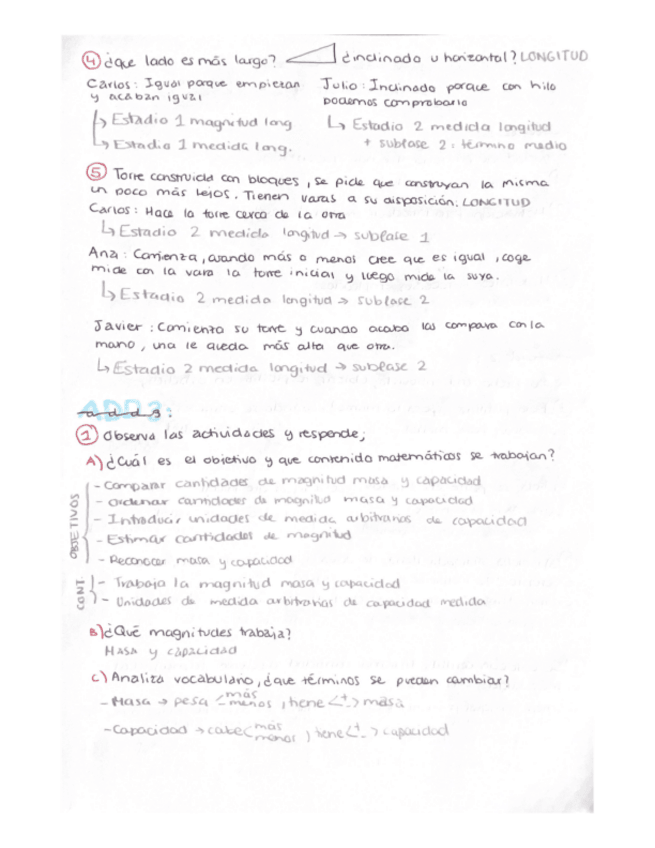 ④ ¿que lado es más largo? ¿inclinado u horizontal? LONGITUD
Carlos: Igual porque empiezan
y acaban igual
↳ Estadio 1 magnitud long
↳ Estadio 1 medida long.
Julio: Inclinado porque con hilo
podemos comprobarlo
↳ Estadio 2 medida longitud
+ subfase 2: término medio
⑤ Torre construida con bloques, se pide que construyan la misma
un poco más lejos. Tienen varas a su disposición. LONGITUD
Carlos: Hace la torre cerca de la otra
↳ Estadio 2 medida longitud → subfase 1
Ana: Comienza, cuando más o menos cree que es igual, coge
mide con la vara la torre inicial y luego mide la suya.
↳ Estadio 2 medida longitud → subfase 2
Javier: Comienza su torre y cuando acaba las compara con la
mano, una le queda más alta que otra.
↳ Estadio 2 medida longitud → subfase 2
add 3:
① Observa las actividades y responde;
A) ¿Cuál es el objetivo y que contenido matemáticos se trabajan?
OBJETIVOS
- Comparar cantidades de magnitud masa y capacidad
- Ordenar cantidades de magnitud masa y capacidad
- Introducir unidades de medida arbitrarias de capacidad
- Estimar cantidades de magnitud
- Reconocer masa y capacidad
CONT
- Trabaja la magnitud masa y capacidad
- Unidades de medida arbitrarias de capacidad medida
B) ¿Qué magnitudes trabaja?
Masa y capacidad
C) Analiza vocabulario, ¿que términos se pueden cambiar?
- Masa → pesa < más menos, tiene < + - > masa
- Capacidad → cabe < más menos, tiene < + - > capacidad